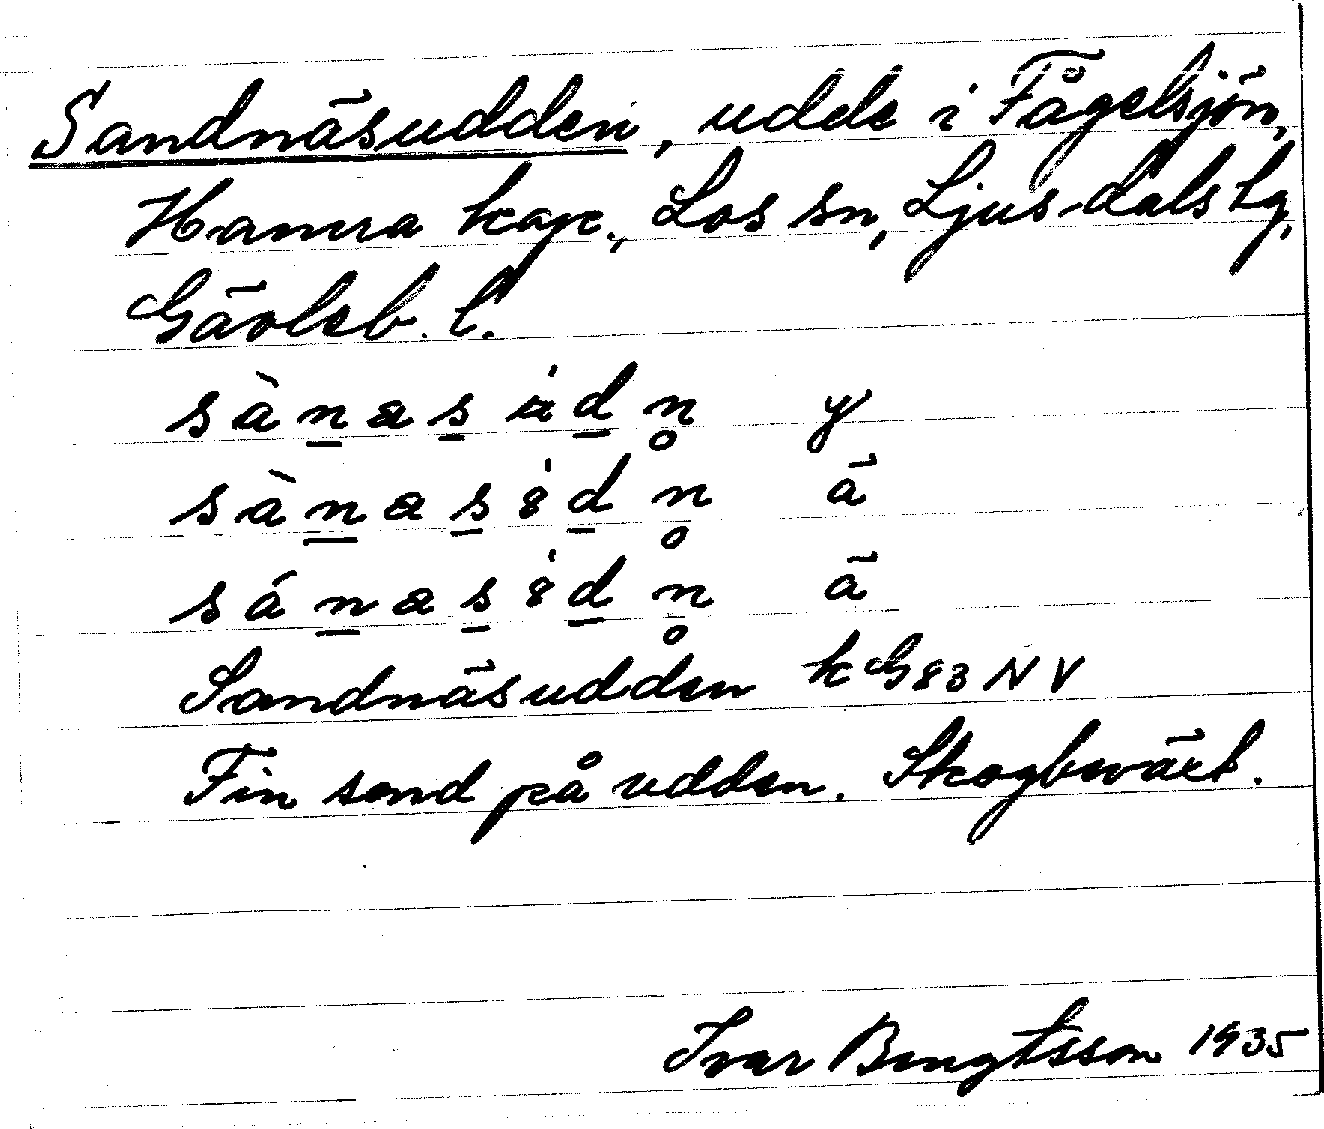 Sandnäsudden, udde i Fågelsjön,
Hamra kap., Los sn, Ljusdals tg,
Gävleb. l.
sàn̲as̲u̇d̲n̥ y
sàn̲as̲ 8̇d̲n̥ ä
sán̲as̲ 8̇d̲n̥ ä
Sandnäsudden kG83NV
Fin sand på udden. Skogbeväxt.
Ivar Bengtsson 1935